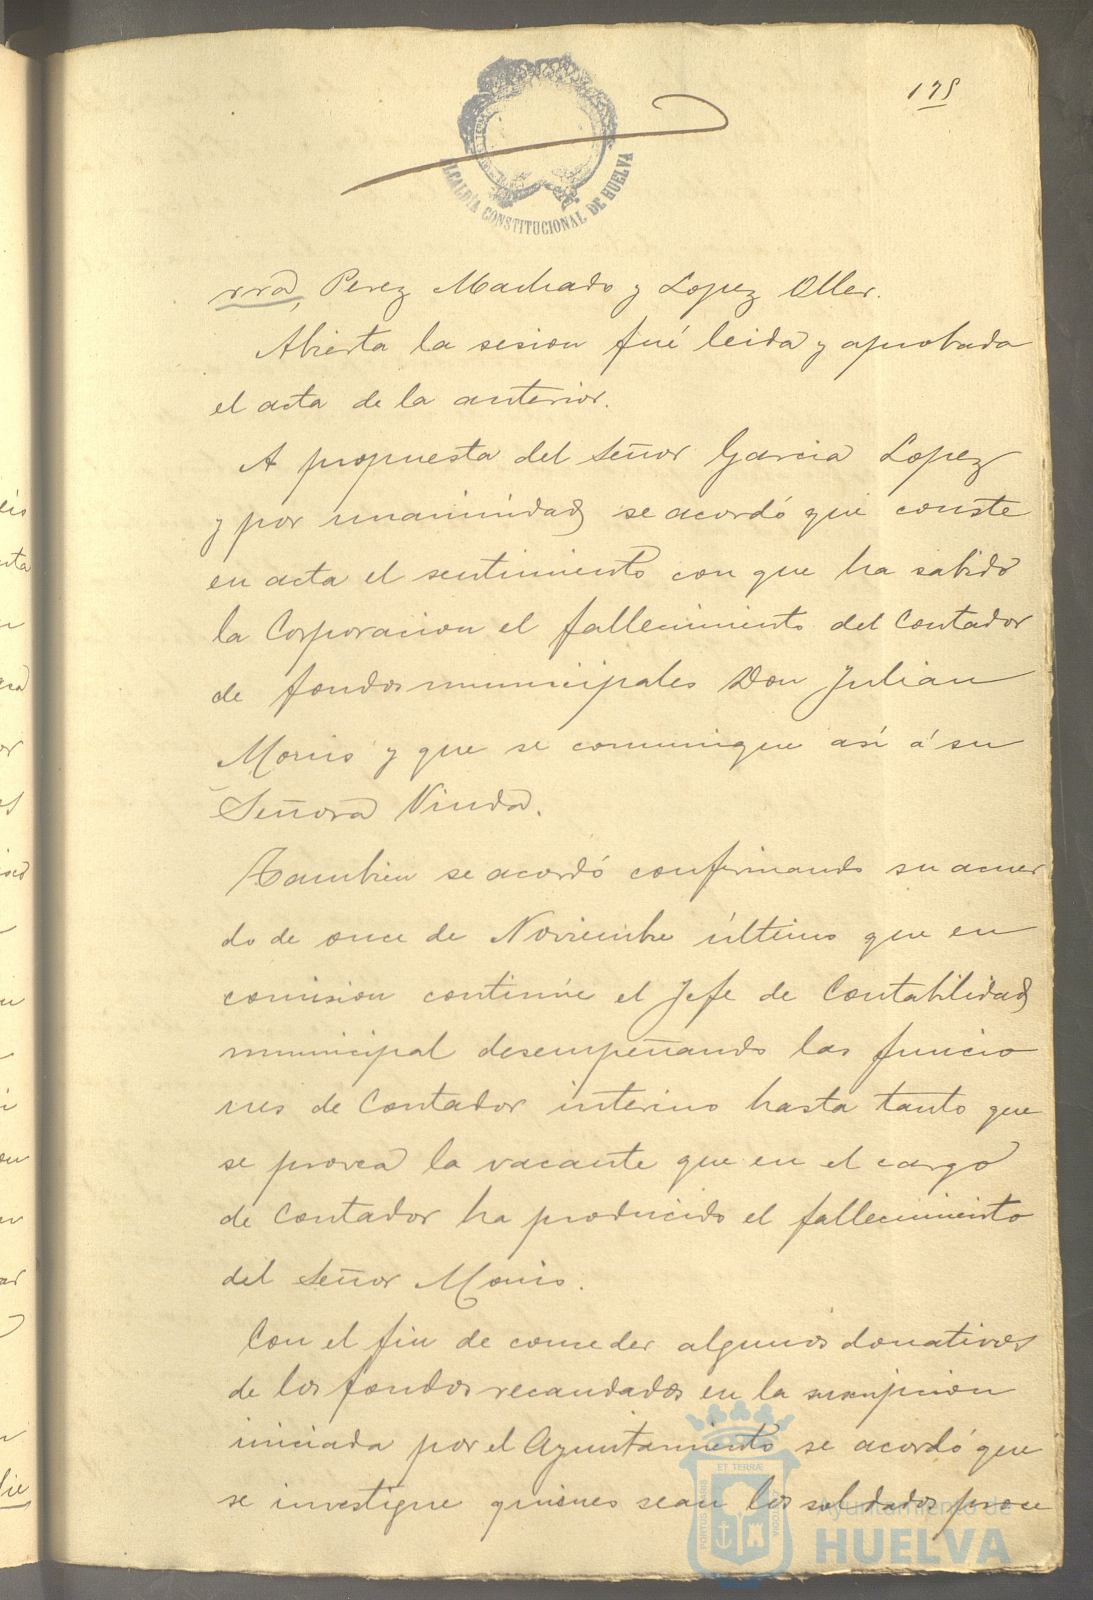 175
ALCALDÍA CONSTITUCIONAL DE HUELVA
rra, Perez Machado y Lopez Oller.
Abierta la sesion fué leida y aprobada
el acta de la anterior.
A propuesta del Señor Garcia Lopez
y por unanimidad se acordó que conste
en acta el sentimiento con que ha sabido
la Corporacion el fallecimiento del Contador
de fondos municipales Don Julian
Monis y que se comunique así á su
Señora Viuda.
Tambien se acordó confirmando su acuer
do de once de Noviembre último que en
comision continúe el Jefe de Contabilidad
municipal desempeñando las funcio
nes de Contador interino hasta tanto que
se provea la vacante que en el cargo
de Contador ha producido el fallecimiento
del Señor Monis.
Con el fin de conceder algunos donativos
de los fondos recaudados en la suscripcion
iniciada por el Ayuntamiento se acordó que
se investigue quienes sean los soldados proce
ET TERRÆ
PORTUS MARIS
CUSTODIA
Ayuntamiento de
HUELVA